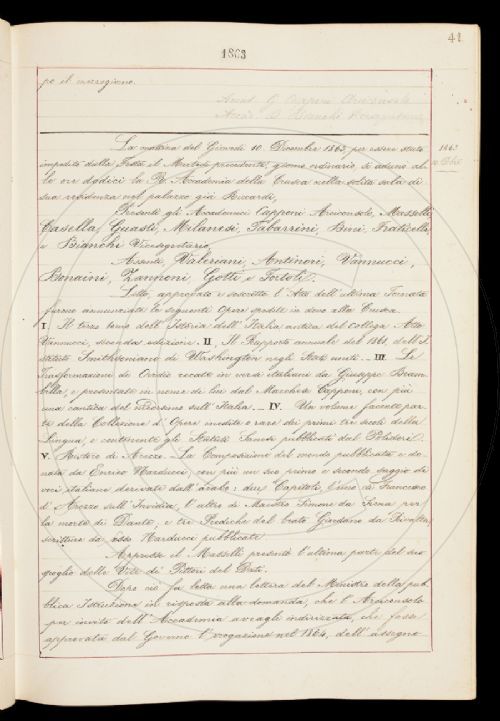 41
1863
po il mezzogiorno.
Accad. G. Capponi Arciconsolo
Accad. B. Bianchi Vicesegretario
La mattina del Giovedì 10. Dicembre 1863, per essere stato
1863
10. Dbre
impedito dalla Festa il Martedì precedente, giorno ordinario, si adunò al-
le ore dodici la R. Accademia della Crusca nella solita sala di
sua residenza nel palazzo già Riccardi,
Presenti gli Accademici Capponi Arciconsolo, Masselli,
Casella, Guasti, Milanesi, Tabarrini, Buci, Fraticelli
e Bianchi Vicesegretario,
Assenti, Valeriani, Antinori, Vannucci,
Bonaini, Zannoni, Gotti e Tortoli.
Letto, approvato e sottoscritto l'Atto dell'ultima Tornata
furono annunciate le seguenti Opere spedite in dono alla Crusca.
I. Il terzo tomo dell'Istoria dell'Italia antica del collega Atto
Vannucci, seconda edizione. II, Il Rapporto annuale del 1861, dell'I-
stituto Smithsoniano di Washington negli Stati uniti. III. Le
Trasformazioni di Ovidio recate in versi italiani da Giuseppe Bram-
billa, e presentate in nome di lui dal Marchese Capponi, con più
una cantica del medesimo sull'Italia. IV. Un volume facente par-
te della Collezione d'Opere inedite o rare dei primi tre secoli della
Lingua, e contenente gli Statuti Senesi pubblicati dal Polidori.
V. Ristoro di Arezzo. La Composizione del mondo pubblicata e do-
nata da Enrico Narducci, con più un suo primo e secondo saggio di
voci italiane derivate dall'arabo: due Capitoli, l'uno di Francesco
d'Arezzo sull'Invidia, l'altro di Maestro Simone da Siena per
la morte di Dante, e tre Prediche del beato Giordano da Rivalta,
scritture da esso Narducci pubblicate.
Appresso il Masselli presentò l'ultima parte del suo
spoglio delle Vite de' Pittori del Dati.
Dopo ciò fu letta una lettera del Ministro della pub-
blica Istruzione in risposta alla domanda, che l'Arciconsolo
per invito dell'Accademia aveagli indirizzata, che fosse
approvata dal Governo l'erogazione nel 1864, dell'assegno